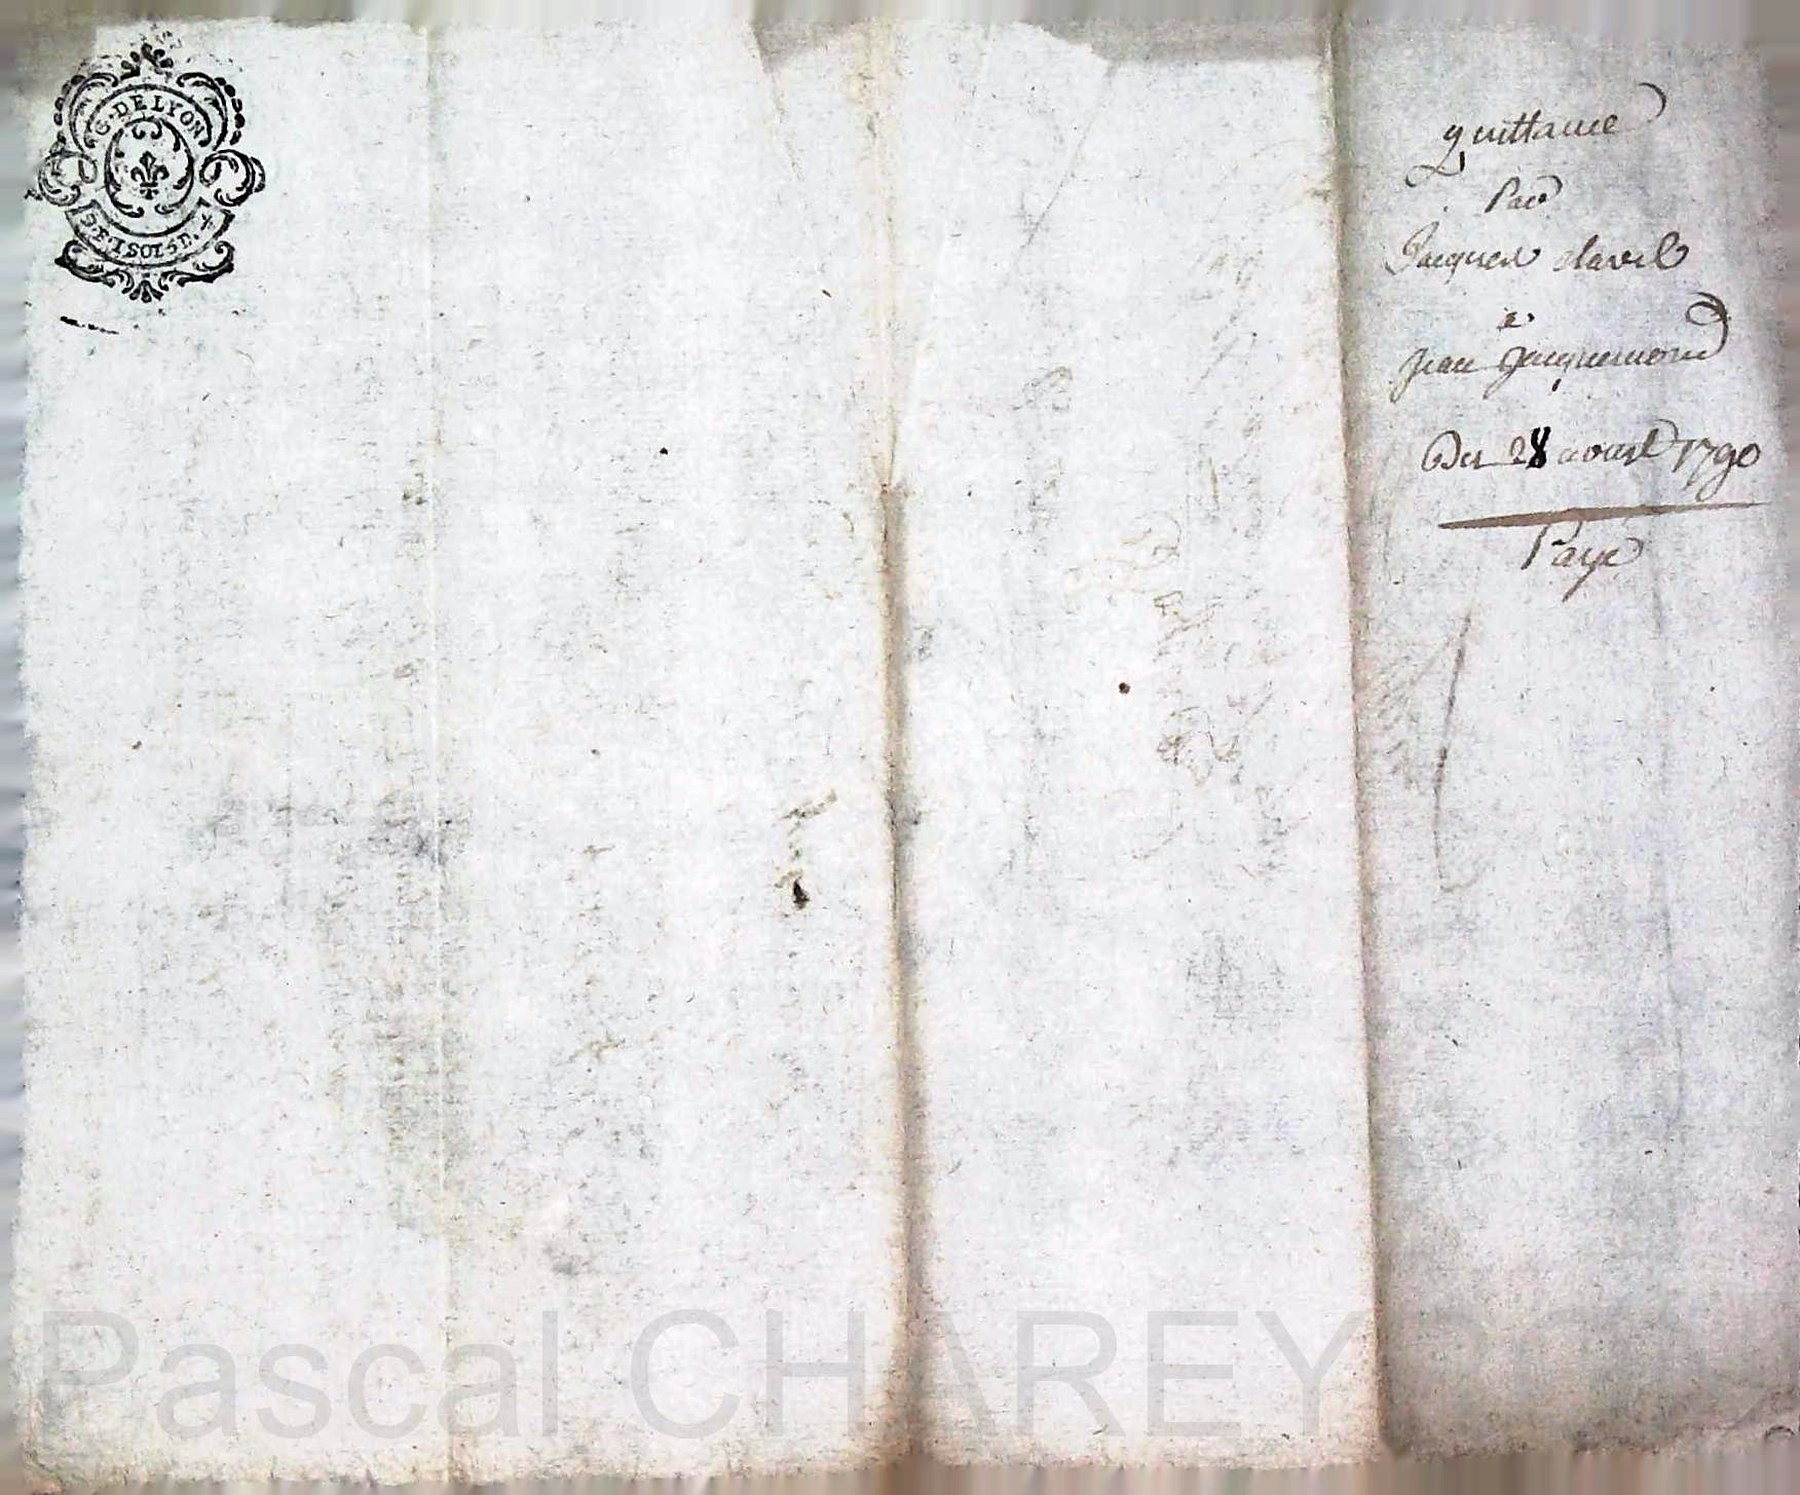 G. DE LYON
P. F. 1 SOL 5 D. 4
quittance
Par
Jacques clavel
a
jean jacquemond
Du 28 avril 1790
Payé
Pascal CHAREY